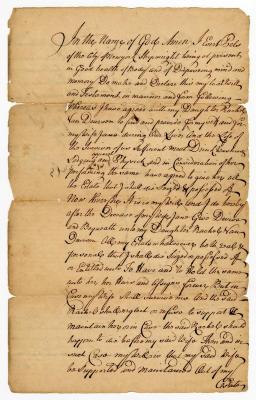 In the Name of God Amen I Evert Pels
of the City of New York Shipwright being at present
in Good health of Body and of Disposing mind and
memory Do make and Declare this my last Will
and Testament in manner and form following
Whereas I have agreed with my Daughter Rachel
Van Deursen to find and provide for myself and for
my wife Jane during our Lives and the Life of
the Survivor of us sufficient meat Drink Cloathing
Lodging and Physick and in Consideration of her
performing the same have agreed to give her all
the Estate that I shall die Seized & possessed of
Now therefore I do hereby
after the Decease of my wife Jane Give Devise
and Bequeath unto my Daughter Rachel Van
Deursen All my Estate whatsoever both real &
personal that I shall die Seized & possessed of
or Entitled unto To Have and to Hold the same
unto her her Heirs and Assigns forever But in
Case my Wife Shall Survive me And the said
Rachel shall neglect or refuse to support &
maintain her or in Case the said Rachel should
happen to die before my said Wife then and in
such Case my Will is that my said Wife
be Supported and maintained Out of my
Estate